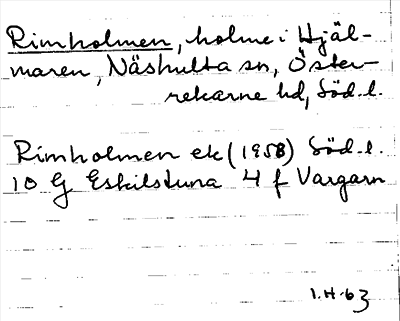 Rimholmen, holme i Hjäl-
maren, Näshulta sn, Öster-
rekarne hd, Söd. l.
Rimholmen ek (1958) Söd. l.
10 G Eskilstuna 4 f Vargarn
1.H.63